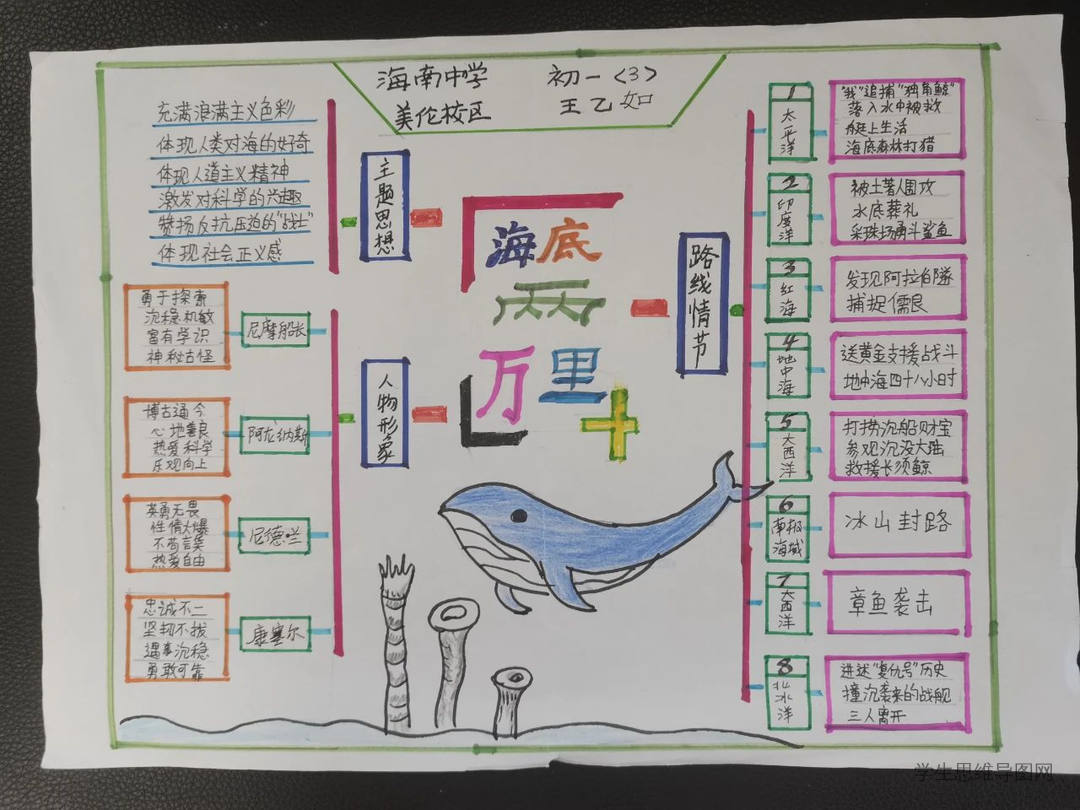 海南中学 初一〈3〉
美伦校区 王乙如
海底
两
万里
主题思想
充满浪满主义色彩
体现人类对海的好奇
体现人道主义精神
激发对科学的兴趣
赞扬反抗压迫的“战士”
体现社会正义感
人物形象
尼摩船长
勇于探索
沉稳机敏
富有学识
神秘古怪
阿龙纳斯
博古通今
心地善良
热爱科学
乐观向上
尼德兰
英勇无畏
性情火爆
不苟言笑
热爱自由
康塞尔
忠诚不二
坚韧不拔
遇事沉稳
勇敢可靠
路线情节
1
太平洋
“我”追捕“独角鲸”
落入水中被救
艇上生活
海底森林打猎
2
印度洋
被土著人围攻
水底葬礼
采珠场勇斗鲨鱼
3
红海
发现阿拉伯隧
捕捉儒良
4
地中海
送黄金支援战斗
地中海四十八小时
5
大西洋
打捞沉船财宝
参观沉没大陆
救援长须鲸
6
南极海域
冰山封路
7
大西洋
章鱼袭击
8
北冰洋
进述“复仇号”历史
撞沉袭来的战舰
三人离开
学生思维导图网